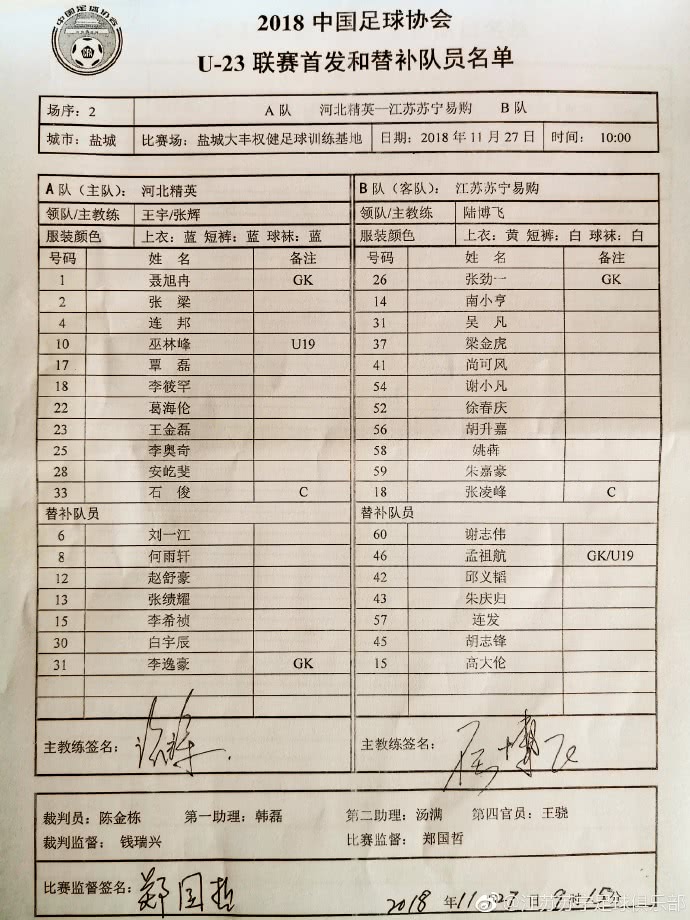 中国足球协会
2018 中国足球协会
U-23 联赛首发和替补队员名单
场序：2 A 队 河北精英—江苏苏宁易购 B 队
城市：盐城 比赛场：盐城大丰权健足球训练基地 日期：2018 年 11 月 27 日 时间： 10:00
A 队（主队）： 河北精英 B 队（客队）： 江苏苏宁易购
领队/主教练 王宇/张辉 领队/主教练 陆博飞
服装颜色 上衣：蓝 短裤：蓝 球袜：蓝 服装颜色 上衣：黄 短裤：白 球袜：白
号码 姓 名 备注 号码 姓 名 备注
1 聂旭冉 GK 26 张劲一 GK
2 张 梁 14 南小亨
4 连 邦 31 吴 凡
10 巫林峰 U19 37 梁金虎
17 覃 磊 41 尚可风
18 李筱罕 54 谢小凡
22 葛海伦 52 徐春庆
23 王金磊 56 胡升嘉
25 李奥奇 58 姚犇
28 安屹斐 59 朱嘉豪
33 石 俊 C 18 张凌峰 C
替补队员 替补队员
6 刘一江 60 谢志伟
8 何雨轩 46 孟祖航 GK/U19
12 赵舒豪 42 邱义韬
13 张绩耀 43 朱庆归
15 李希祯 57 连发
30 白宇辰 45 胡志锋
31 李逸豪 GK 15 高大伦
主教练签名： 主教练签名：
裁判员：陈金栋 第一助理：韩磊 第二助理：汤满 第四官员：王骁
裁判监督： 钱瑞兴 比赛监督： 郑国哲
比赛监督签名： 郑国哲 2018 年 11 月 27 日 9 时 15 分